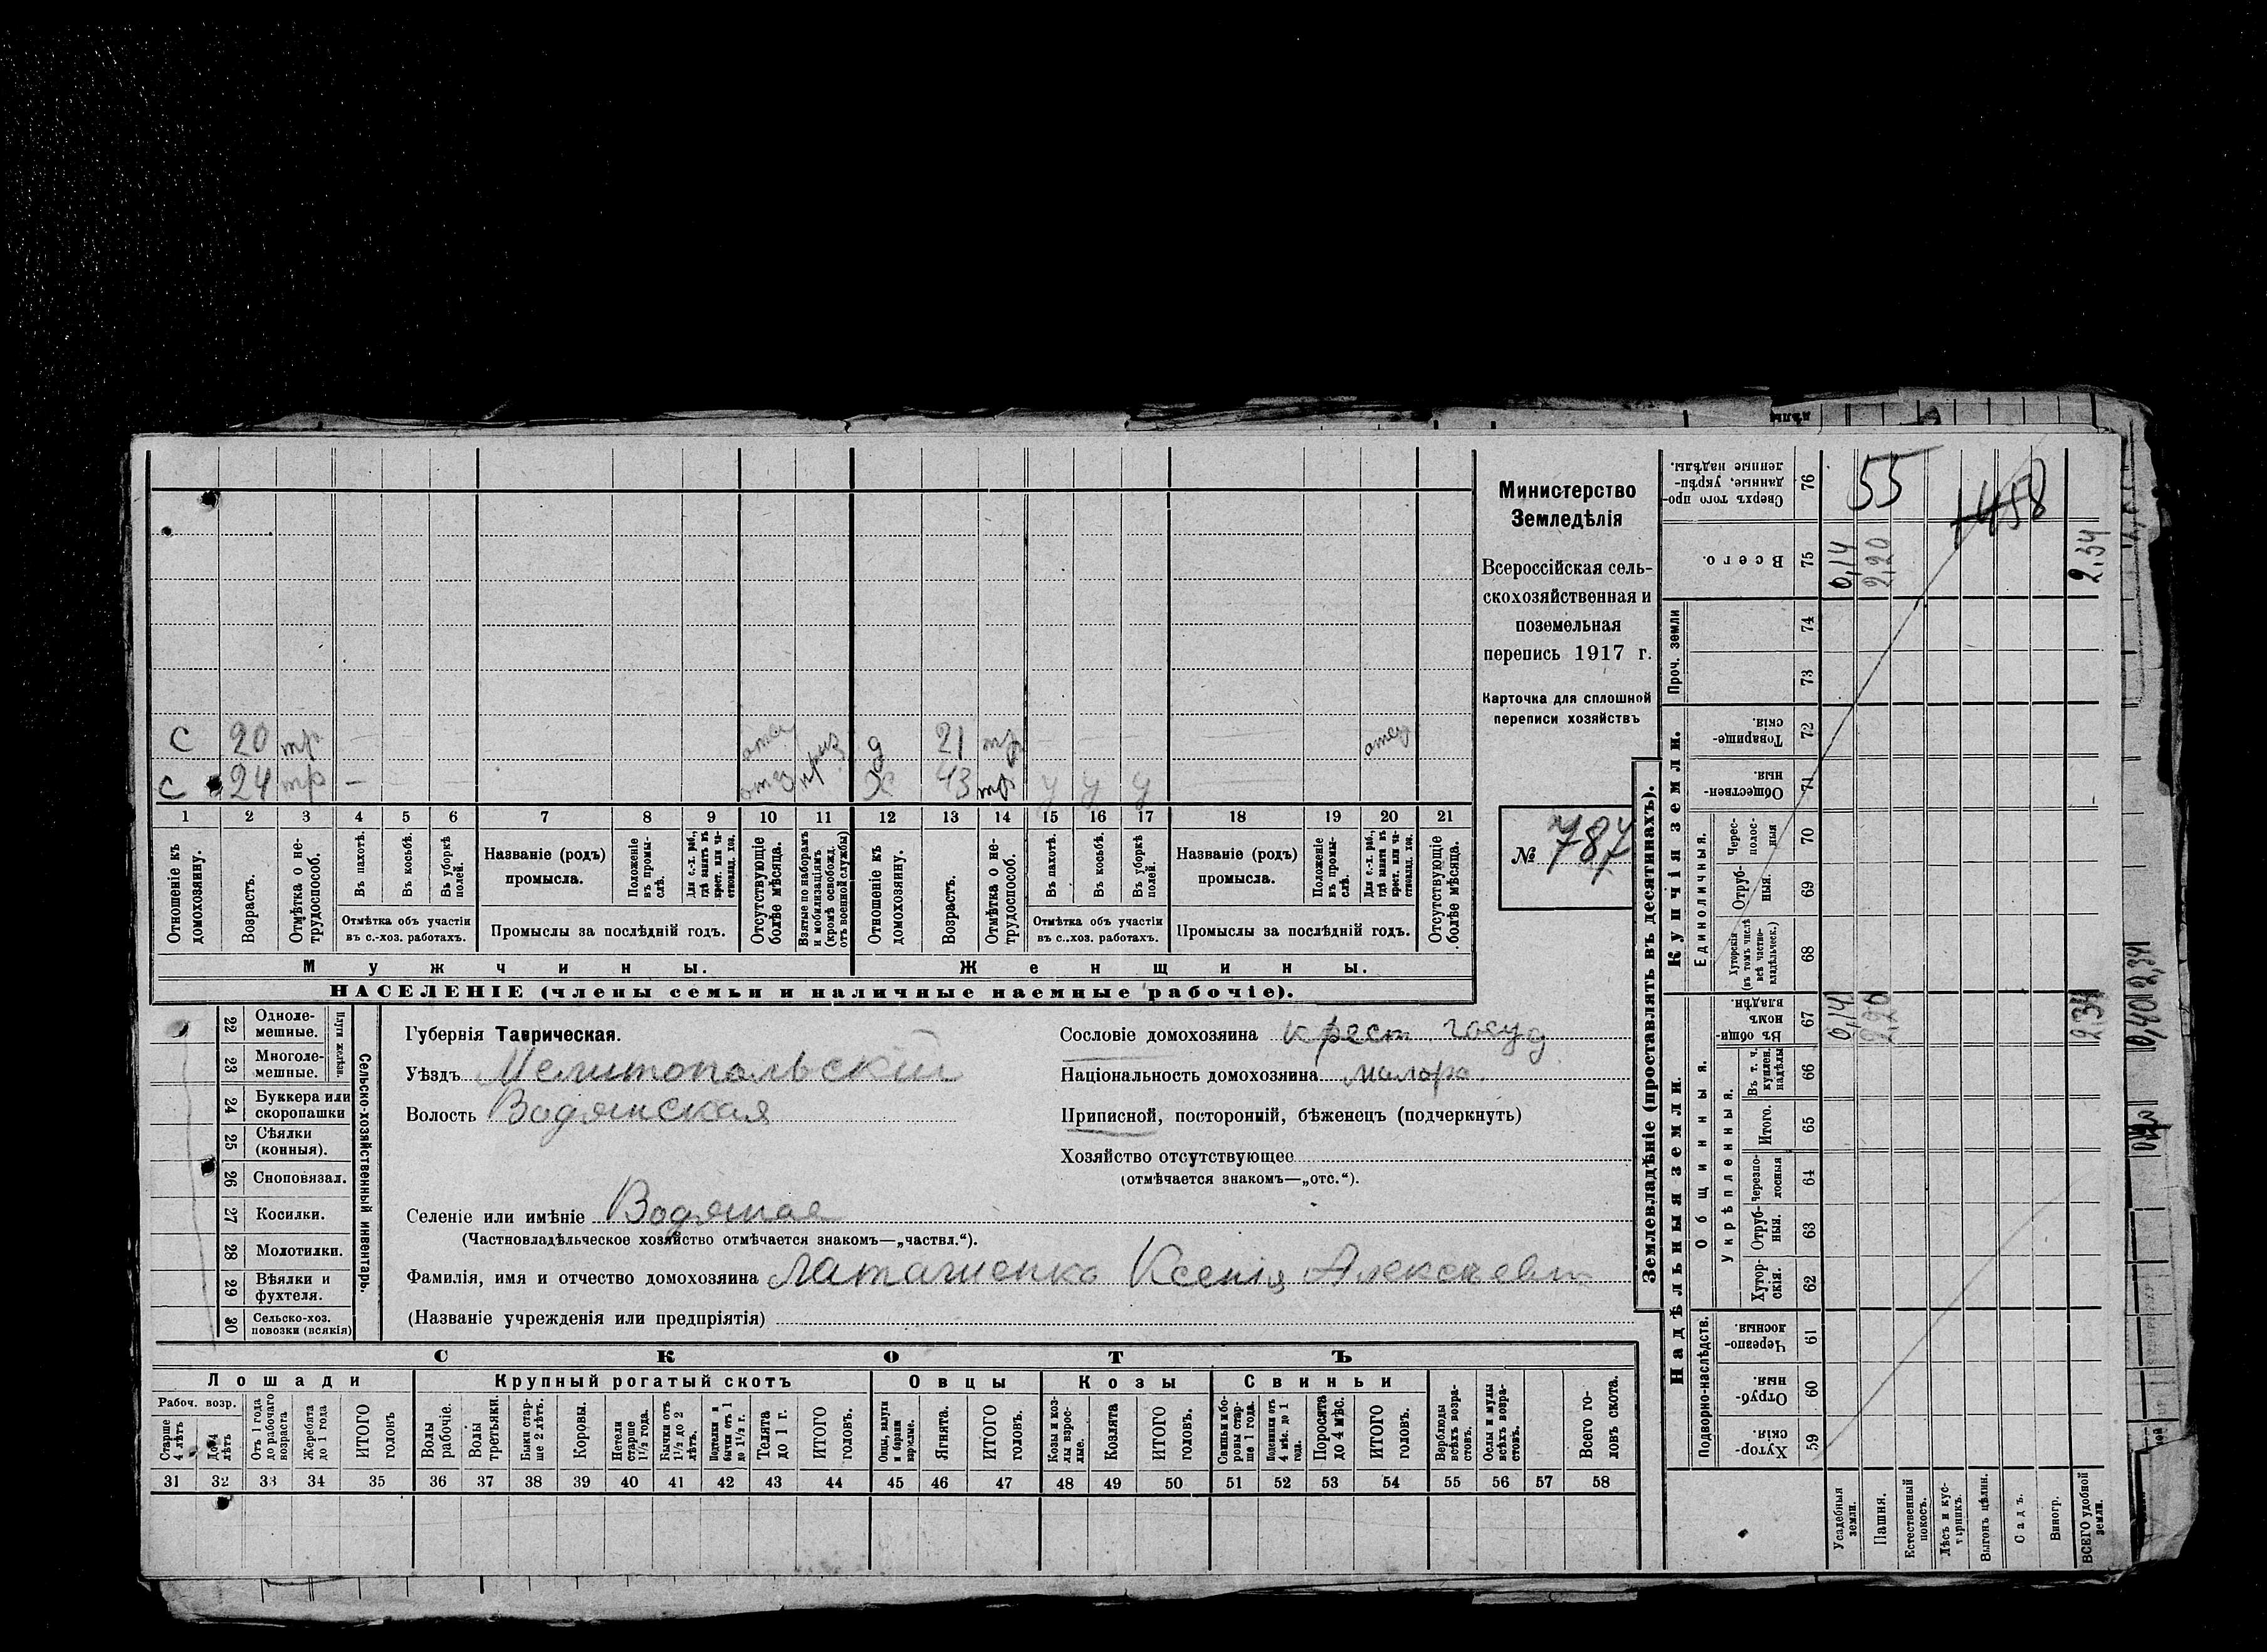 Министерство
Земледѣлія
Всероссійская сель-
скохозяйственная и
поземельная
перепись 1917 г.
Карточка для сплошной
переписи хозяйствъ
№ 787
с 20 тр. отсу приз д 21 тр. отсу
с 24 тр – отсу приз х 43 тр у у у
1 2 3 4 5 6 7 8 9 10 11 12 13 14 15 16 17 18 19 20 21
Отношеніе къ домохозяину.
Возрастъ.
Отмѣтка о не-трудоспособ.
Въ пахотѣ.
Въ косьбѣ.
Въ уборкѣ полей.
Отмѣтка объ участіи
въ с.-хоз. работахъ.
Названіе (родъ)
промысла.
Положеніе въ промы-слѣ.
Для с.-х. раб., гдѣ занятъ въ крест. или ча-стновлад. хоз.
Промыслы за послѣдній годъ.
Отсутствующіе болѣе мѣсяца.
Взятые по наборамъ и мобилизаціямъ (кромѣ освобожд. отъ военной службы)
Отношеніе къ домохозяину.
Возрастъ.
Отмѣтка о не-трудоспособ.
Въ пахотѣ.
Въ косьбѣ.
Въ уборкѣ полей.
Отмѣтка объ участіи
въ с.-хоз. работахъ.
Названіе (родъ)
промысла.
Положеніе въ промы-слѣ.
Для с.-х. раб., гдѣ заняти въ крест. или ча-стновлад. хоз.
Промыслы за послѣдній годъ.
Отсутствующіе болѣе мѣсяца.
Мужчины. Женщины.
НАСЕЛЕНІЕ (члены семьи и наличные наемные рабочіе).
22 Одноле-мешные.
23 Многоле-мешные.
Плуги желѣзн.
24 Буккера или скоропашки
25 Сѣялки (конныя).
26 Сноповязал.
27 Косилки.
28 Молотилки.
29 Вѣялки и фухтеля.
30 Сельско-хоз. повозки (всякія)
Сельско-хозяйственный инвентарь.
Губернія Таврическая.
Уѣздъ Мелитопольскій
Волость Водянская
Селеніе или имѣніе Водяная
(Частновладѣльческое хозяйство отмѣчается знакомъ—„частвл.“).
Фамилія, имя и отчество домохозяина Ксенія Алексѣевн
(Названіе учрежденія или предпріятія)
Сословіе домохозяина крест. госуд
Національность домохозяина малорос.
Приписной, посторонній, бѣженецъ (подчеркнуть)
Хозяйство отсутствующее
(отмѣчается знакомъ—„отс.“).
СКОТЪ
Лошади Крупный рогатый скотъ Овцы Козы Свиньи
Рабоч. возр.
Старше 4 лѣтъ
До 4 лѣтъ
Отъ 1 года до рабочаго возраста
Жеребята до 1 года
ИТОГО головъ
Волы рабочіе.
Волы третьяки.
Быки стар-ше 2 лѣтъ.
Коровы.
Нетели старше 1 1/2 года.
Бычки отъ 1 1/2 до 2 лѣтъ.
Подтелки и бычки отъ 1 до 1 1/2 г.
Телята до 1 г.
ИТОГО головъ.
Овцы, валухи и бараны взрослые.
Ягнята.
ИТОГО головъ.
Козы и коз-лы взрос-лые.
Козлята
ИТОГО головъ.
Свиньи и бо-ровы стар-ше 1 года.
Подсвинки отъ 4 мѣс. до 1 года.
Поросята до 4 мѣс.
ИТОГО головъ.
Верблюды всѣхъ возра-стовъ.
Ослы и мулы всѣхъ возра-стовъ.
Всего го-ловъ скота.
31 32 33 34 35 36 37 38 39 40 41 42 43 44 45 46 47 48 49 50 51 52 53 54 55 56 57 58
Землевладѣніе (проставлять въ десятинахъ).
Надѣльныя земли.
Купчія земли.
Проч. земли
Подворно-наслѣдств.
Общинныя.
Укрѣпленныя.
Единоличныя.
Хутор-скія. 59
Отруб-ныя. 60
Черезпо-лосныя. 61
Хутор-скія. 62
Отруб-ныя. 63
Черезпо-лосныя 64
Итого. 65
Въ т. ч. куплен. надѣлы 66
Въ общи-номъ владѣн. 67
Хуторскія (въ томъ числѣ всѣ частно-владѣльческ.) 68
Отруб-ныя. 69
Черес-полос-ныя 70
Обществен-ныя. 71
Товарище-скія. 72
73
74
Всего. 75
Сверхъ того про-данные, укрѣп-ленные надѣлы. 76
55
1458
0,14 2,20 2,34
0,14 2,20 2,34
Усадебныя земли.
Пашня.
Естественный покосъ.
Лѣсъ и кус-тарникъ.
Выгонъ цѣлин.
Садъ.
Виногр.
ВСЕГО удобной земли.